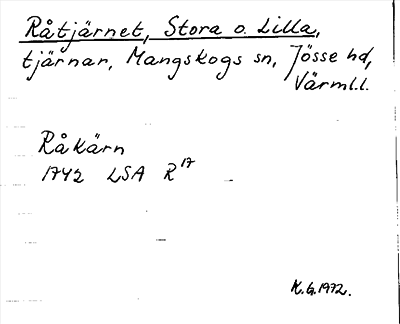 Råtjärnet, Stora o. Lilla,
tjärnar, Mangskogs sn, Jösse hd,
Värml.l.
Råkärn
1742 LSA R17
K.G.1972.